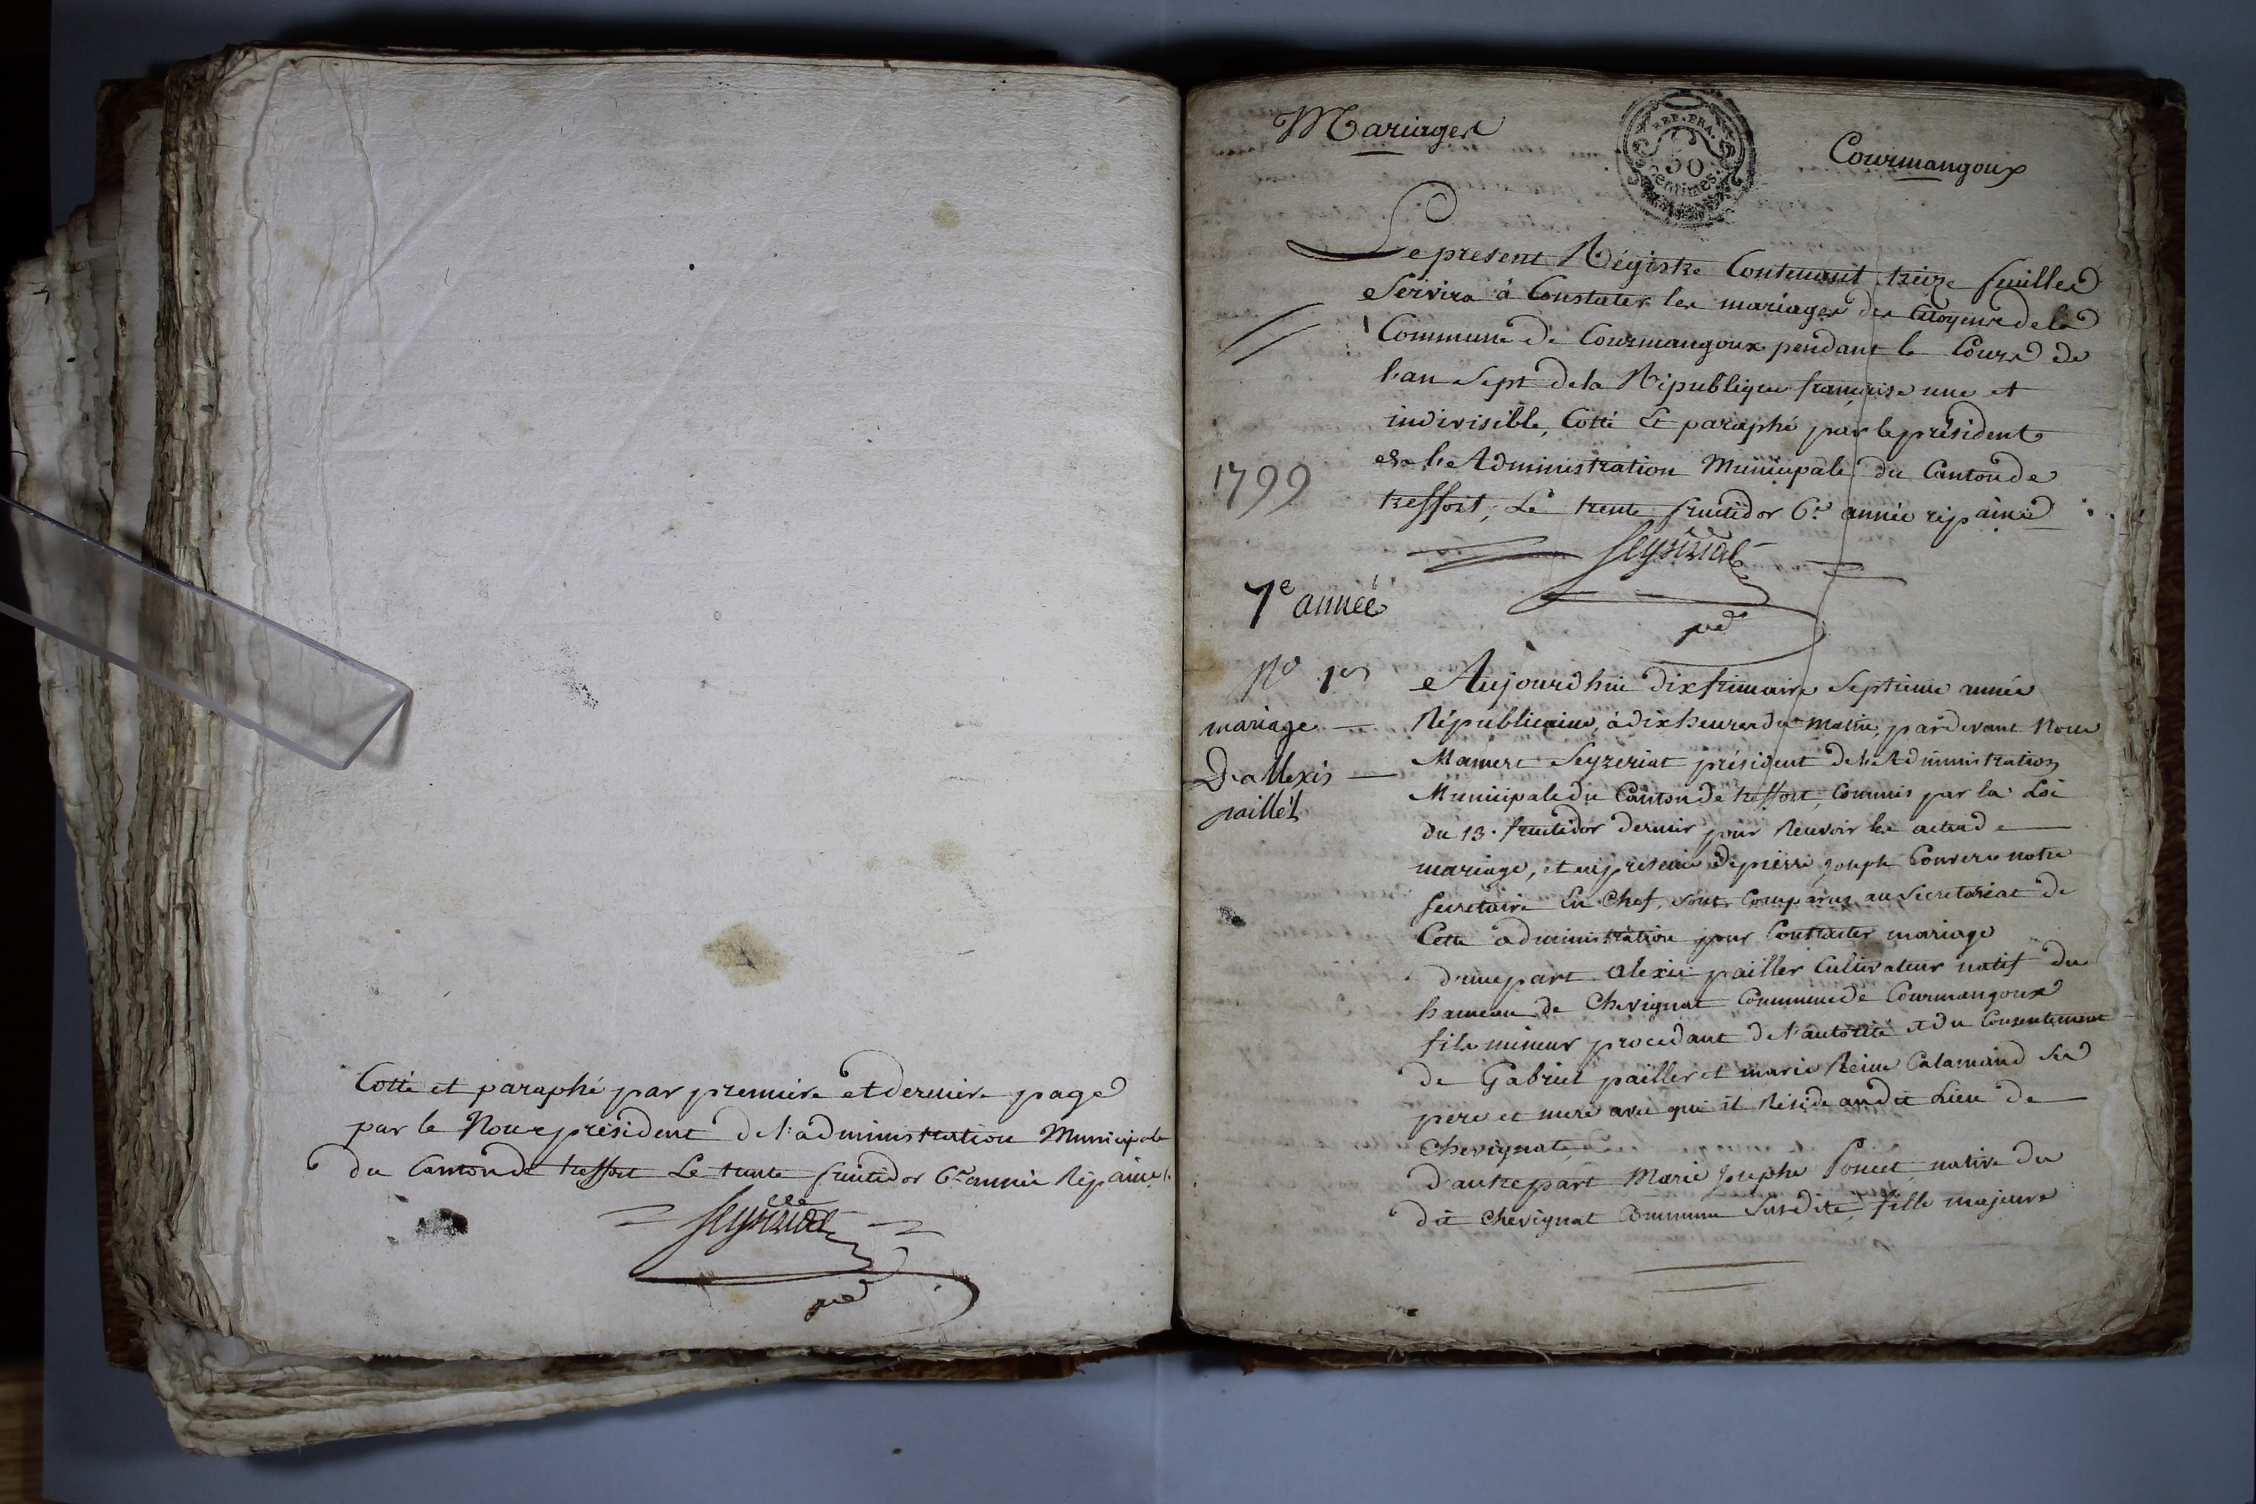 Cotté et paraphé par premiere et derniere page
par le Nous président de l'administration Municipale
du Canton de treffort Le trente fructidor 6e année Répaine
Seyzeriat
pd
Mariages
REP. FRA.
50
centimes
Courmangoux
Le present Régistre Contenant treize feuilles
Servira à Constater les mariages des Citoyens de la
Commune de Courmangoux pendant le Cours de
l'an Sept de la République française une et
indivisible, Cotté Et paraphé par le président
de l'Administration Municipale du Canton de
treffort, Le trente fructidor 6e année répaine
1799
Seyzeriat
pd
7e année
No 1er
mariage
D'allexis
paillet
Aujourd'hui dix frimaire Septieme année
Républicaine, à dix heures du matin, pardevant Nous
Mamert Seyzeriat président de l'Administration
Municipale du Canton de treffort, Commis par la Loi
du 13. fructidor dernier pour Recevoir les actes de
mariage, et en presence de pierre joseph Convers notre
Secretaire En Chef, sont Comparus au Secretariat de
Cette administration pour Contracter mariage
d'une part alexis pailler Cultivateur natif du
hameau de Chevignat Commune de Courmangoux
fils mineur procedant de l'autorité et du Consentement
de Gabriel pailler et marie Reine Calamand Ses
pere et mere avec qui il Réside audit Lieu de
Chevignat
d'autre part Marie Josephe Poncet native du
dit chevignat Commune Susdite, fille majeure